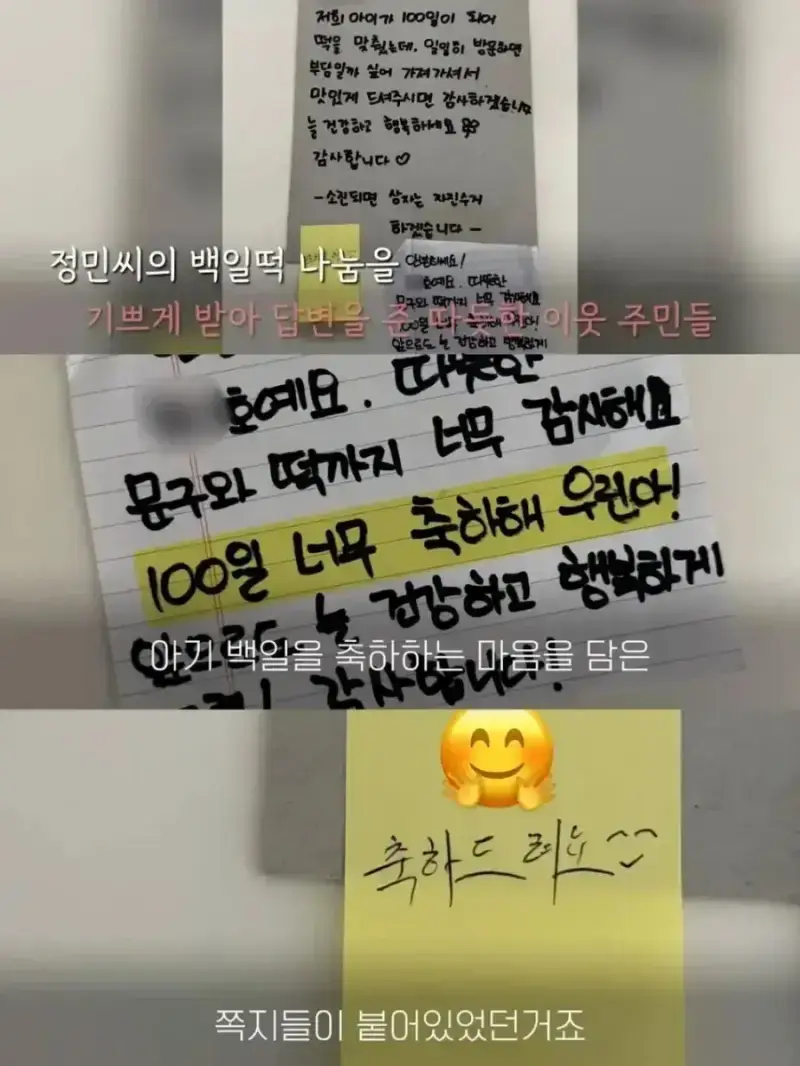 저희 아이가 100일이 되어
떡을 맞췄는데, 일일히 방문하면
부담일까 싶어 가져가셔서
맛있게 드셔주시면 감사하겠습니다
늘 건강하고 행복하세요
감사합니다♡
-소진되면 상자는 자진수거
하겠습니다-
안녕하세요!
호예요. 따뜻한
문구와 떡까지 너무 감사해요
100일 너무 축하해
앞으로도 늘 건강하고 행복하게
정민씨의 백일떡 나눔을
기쁘게 받아 답변을 준 따듯한 이웃 주민들
호예요. 따뜻한
문구와 떡까지 너무 감사해요
100일 너무 축하해 우린아!
앞으로도 늘 건강하고 행복하게
감사합니다!
아기 백일을 축하하는 마음을 담은
축하드려요^^
쪽지들이 붙어있었던거죠